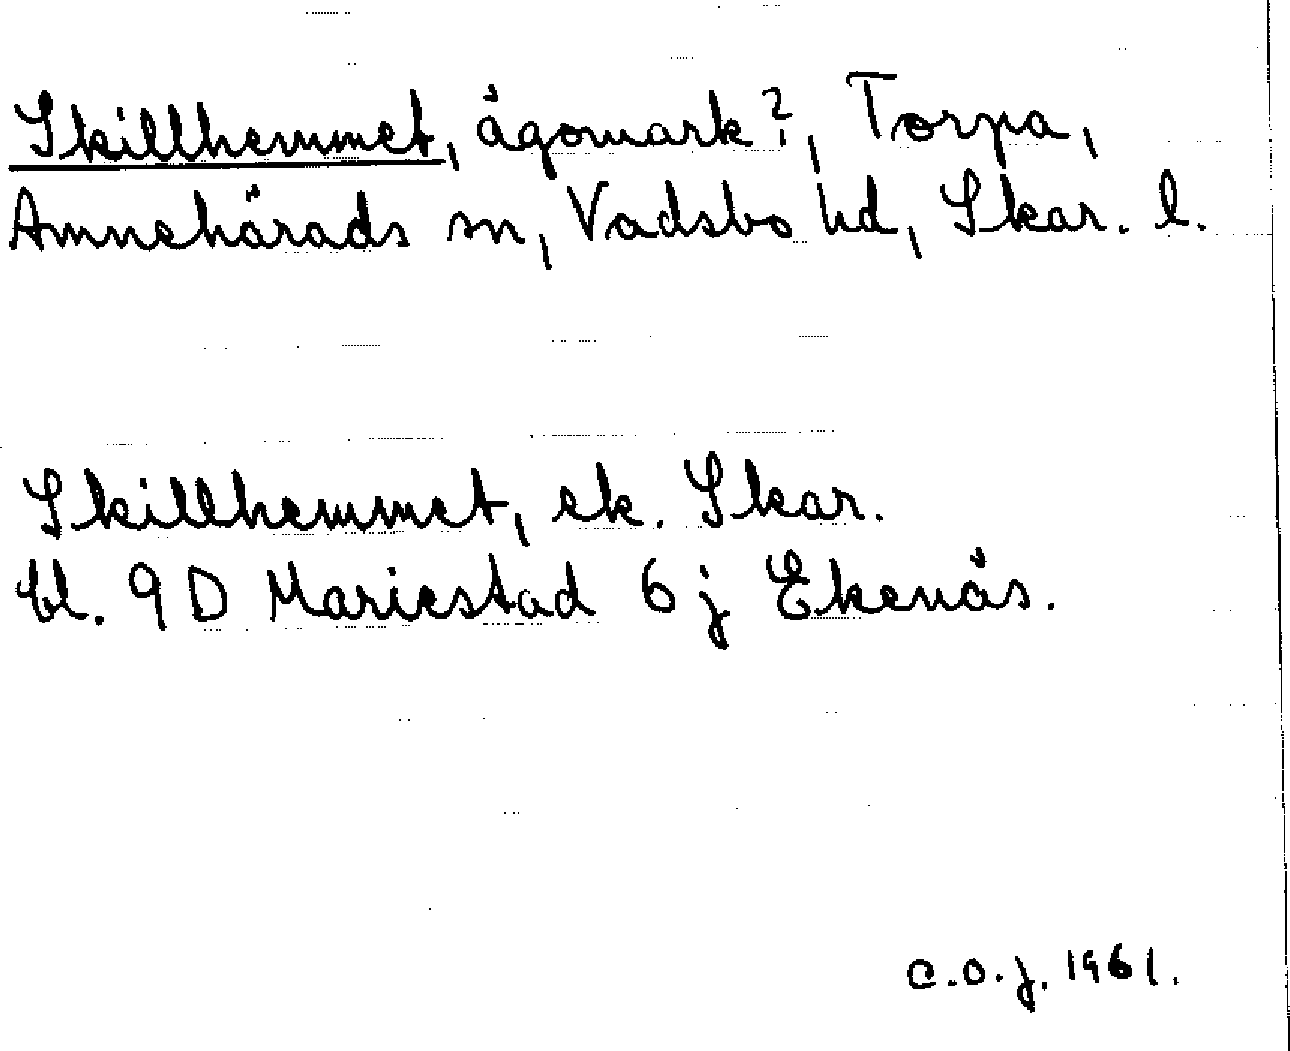 Skillhemmet, ägomark?, Torpa,
Amnehärads sn, Vadsbo hd, Skar. l.
Skillhemmet, ek. Skar.
bl. 9D Mariestad 6 j Ekenäs.
C.O.J. 1961.